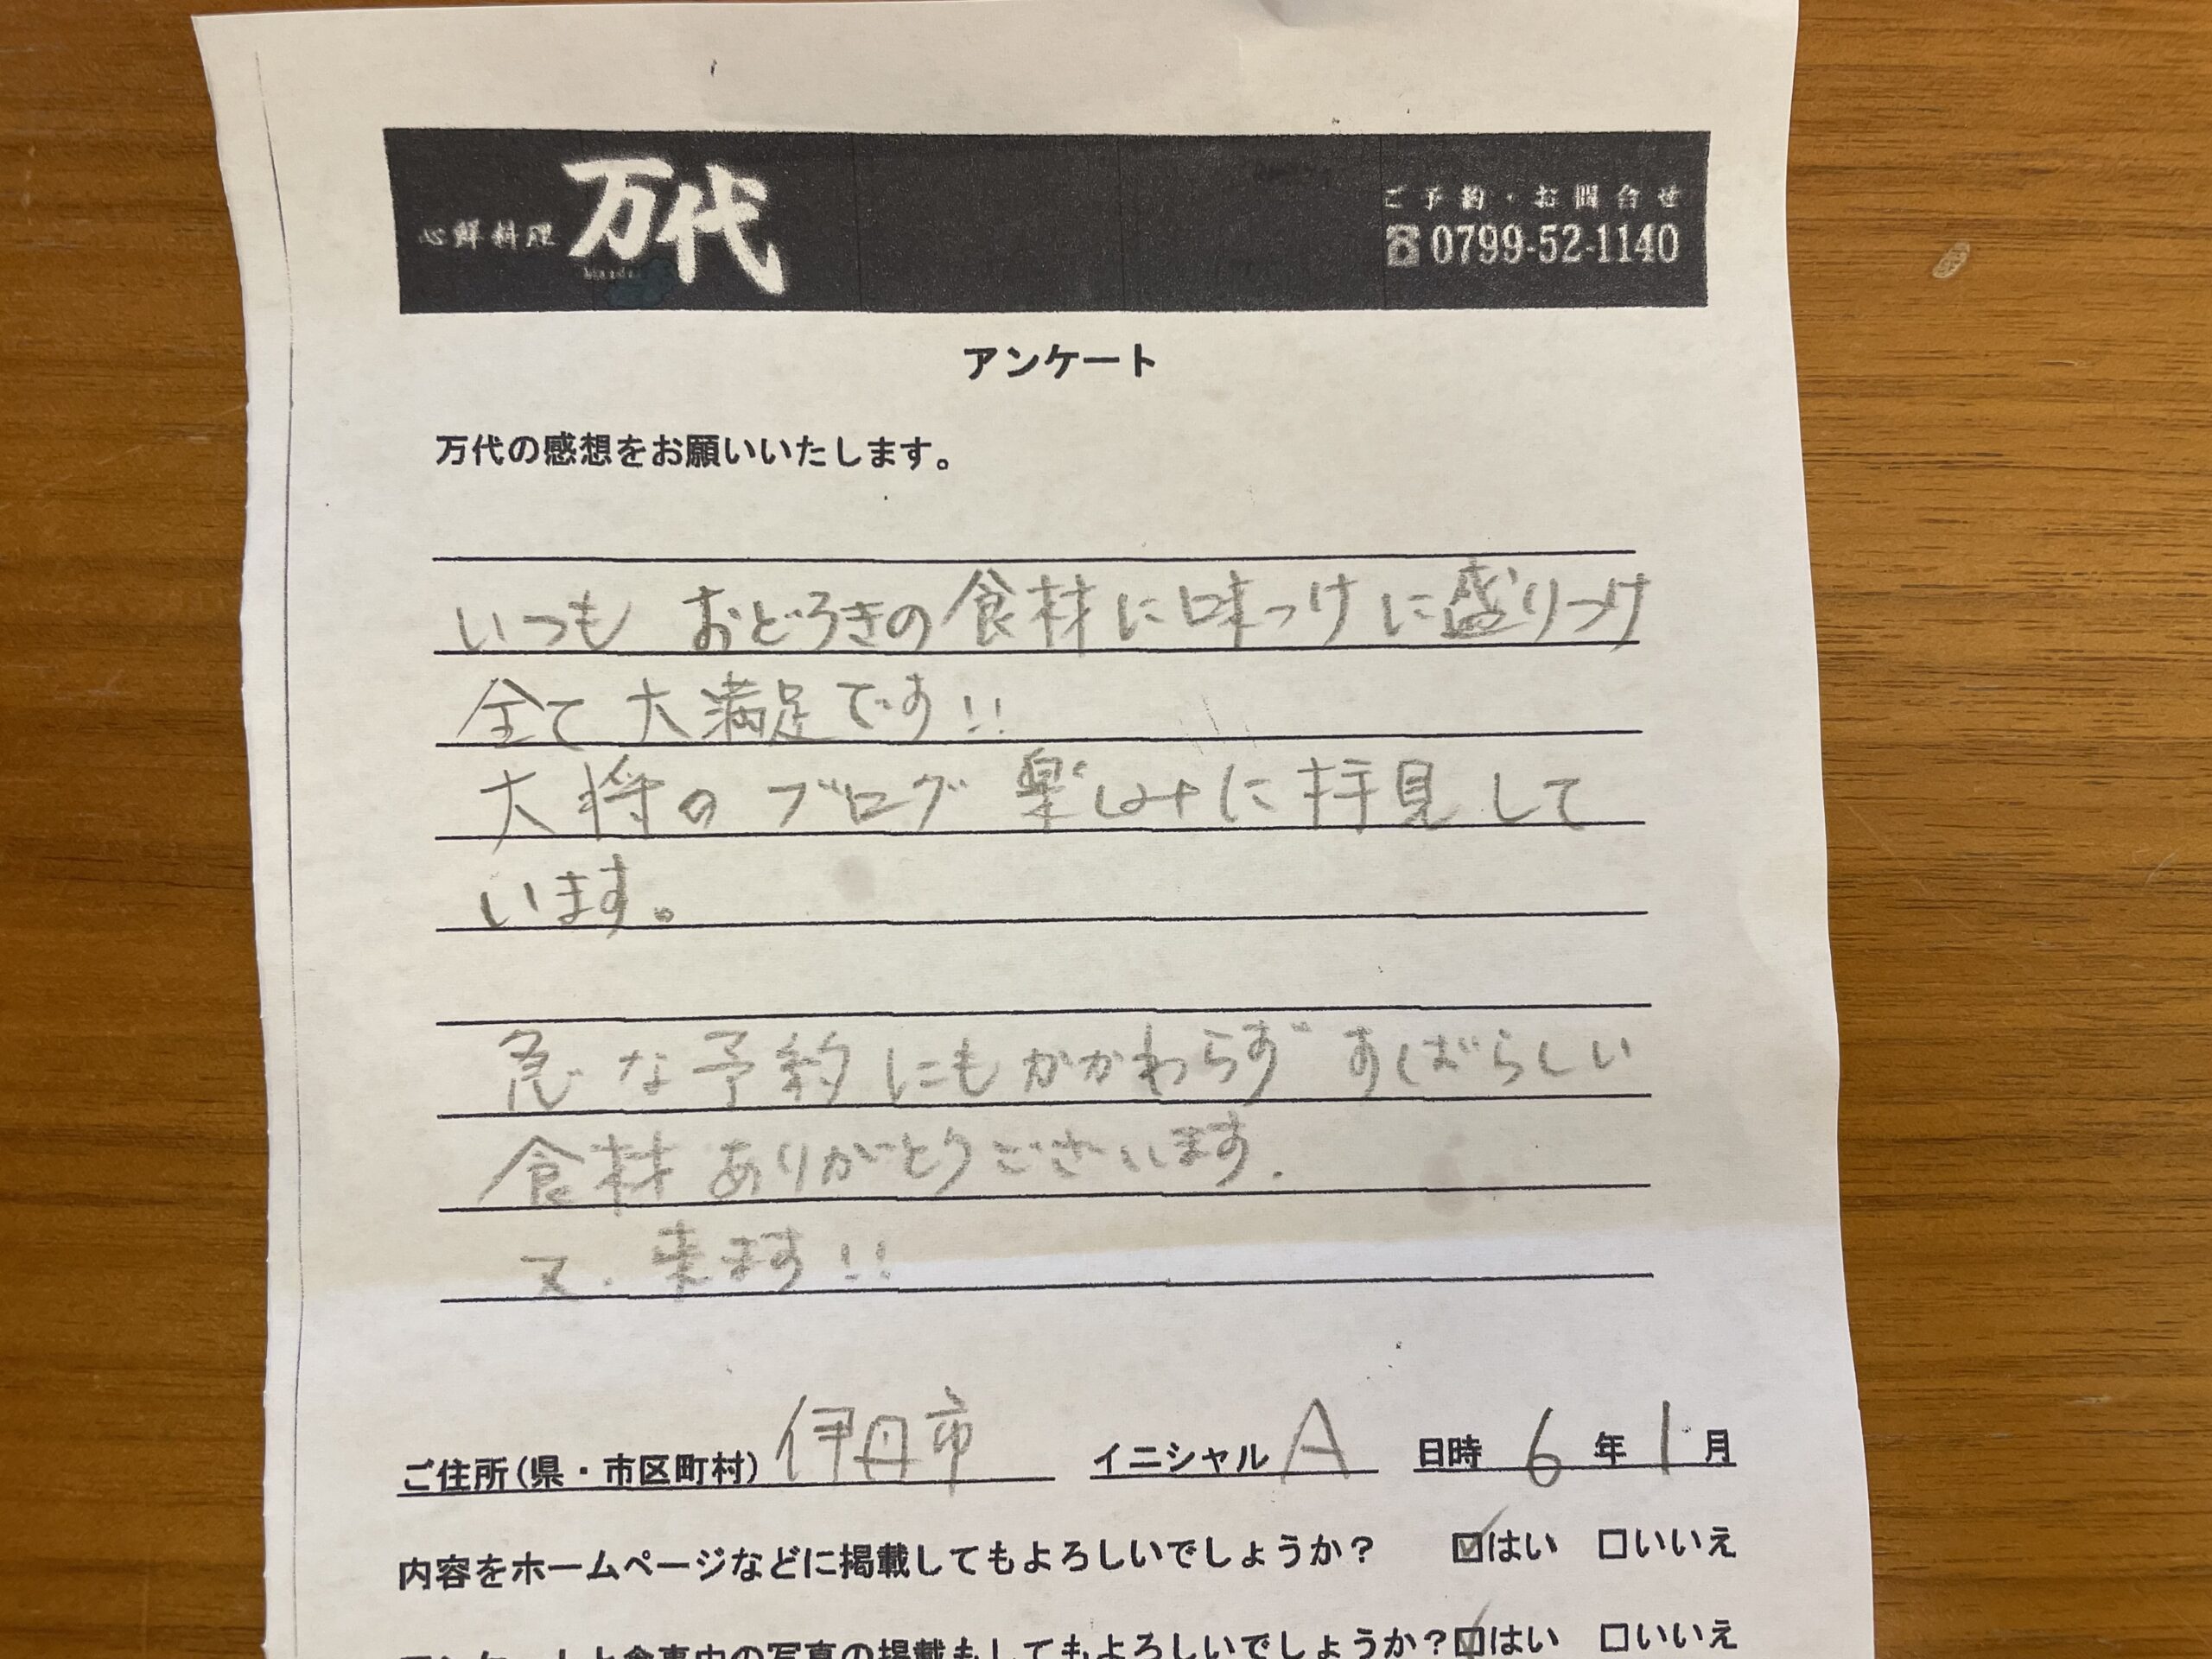 心鮮料理 万代
ご予約・お問合せ
☎0799-52-1140
アンケート
万代の感想をお願いいたします。
いつも おどろきの食材に味つけに盛りつけ
全て大満足です!!
大将のブログ楽しみに拝見して
います。
急な予約にもかかわらず すばらしい
食材ありがとうございます.
又.来ます!!
ご住所(県・市区町村) 伊丹市 イニシャル A 日時 6年1月
内容をホームページなどに掲載してもよろしいでしょうか? ☑はい □いいえ
アンケートと食事中の写真の掲載もしてもよろしいでしょうか?☑はい □いいえ